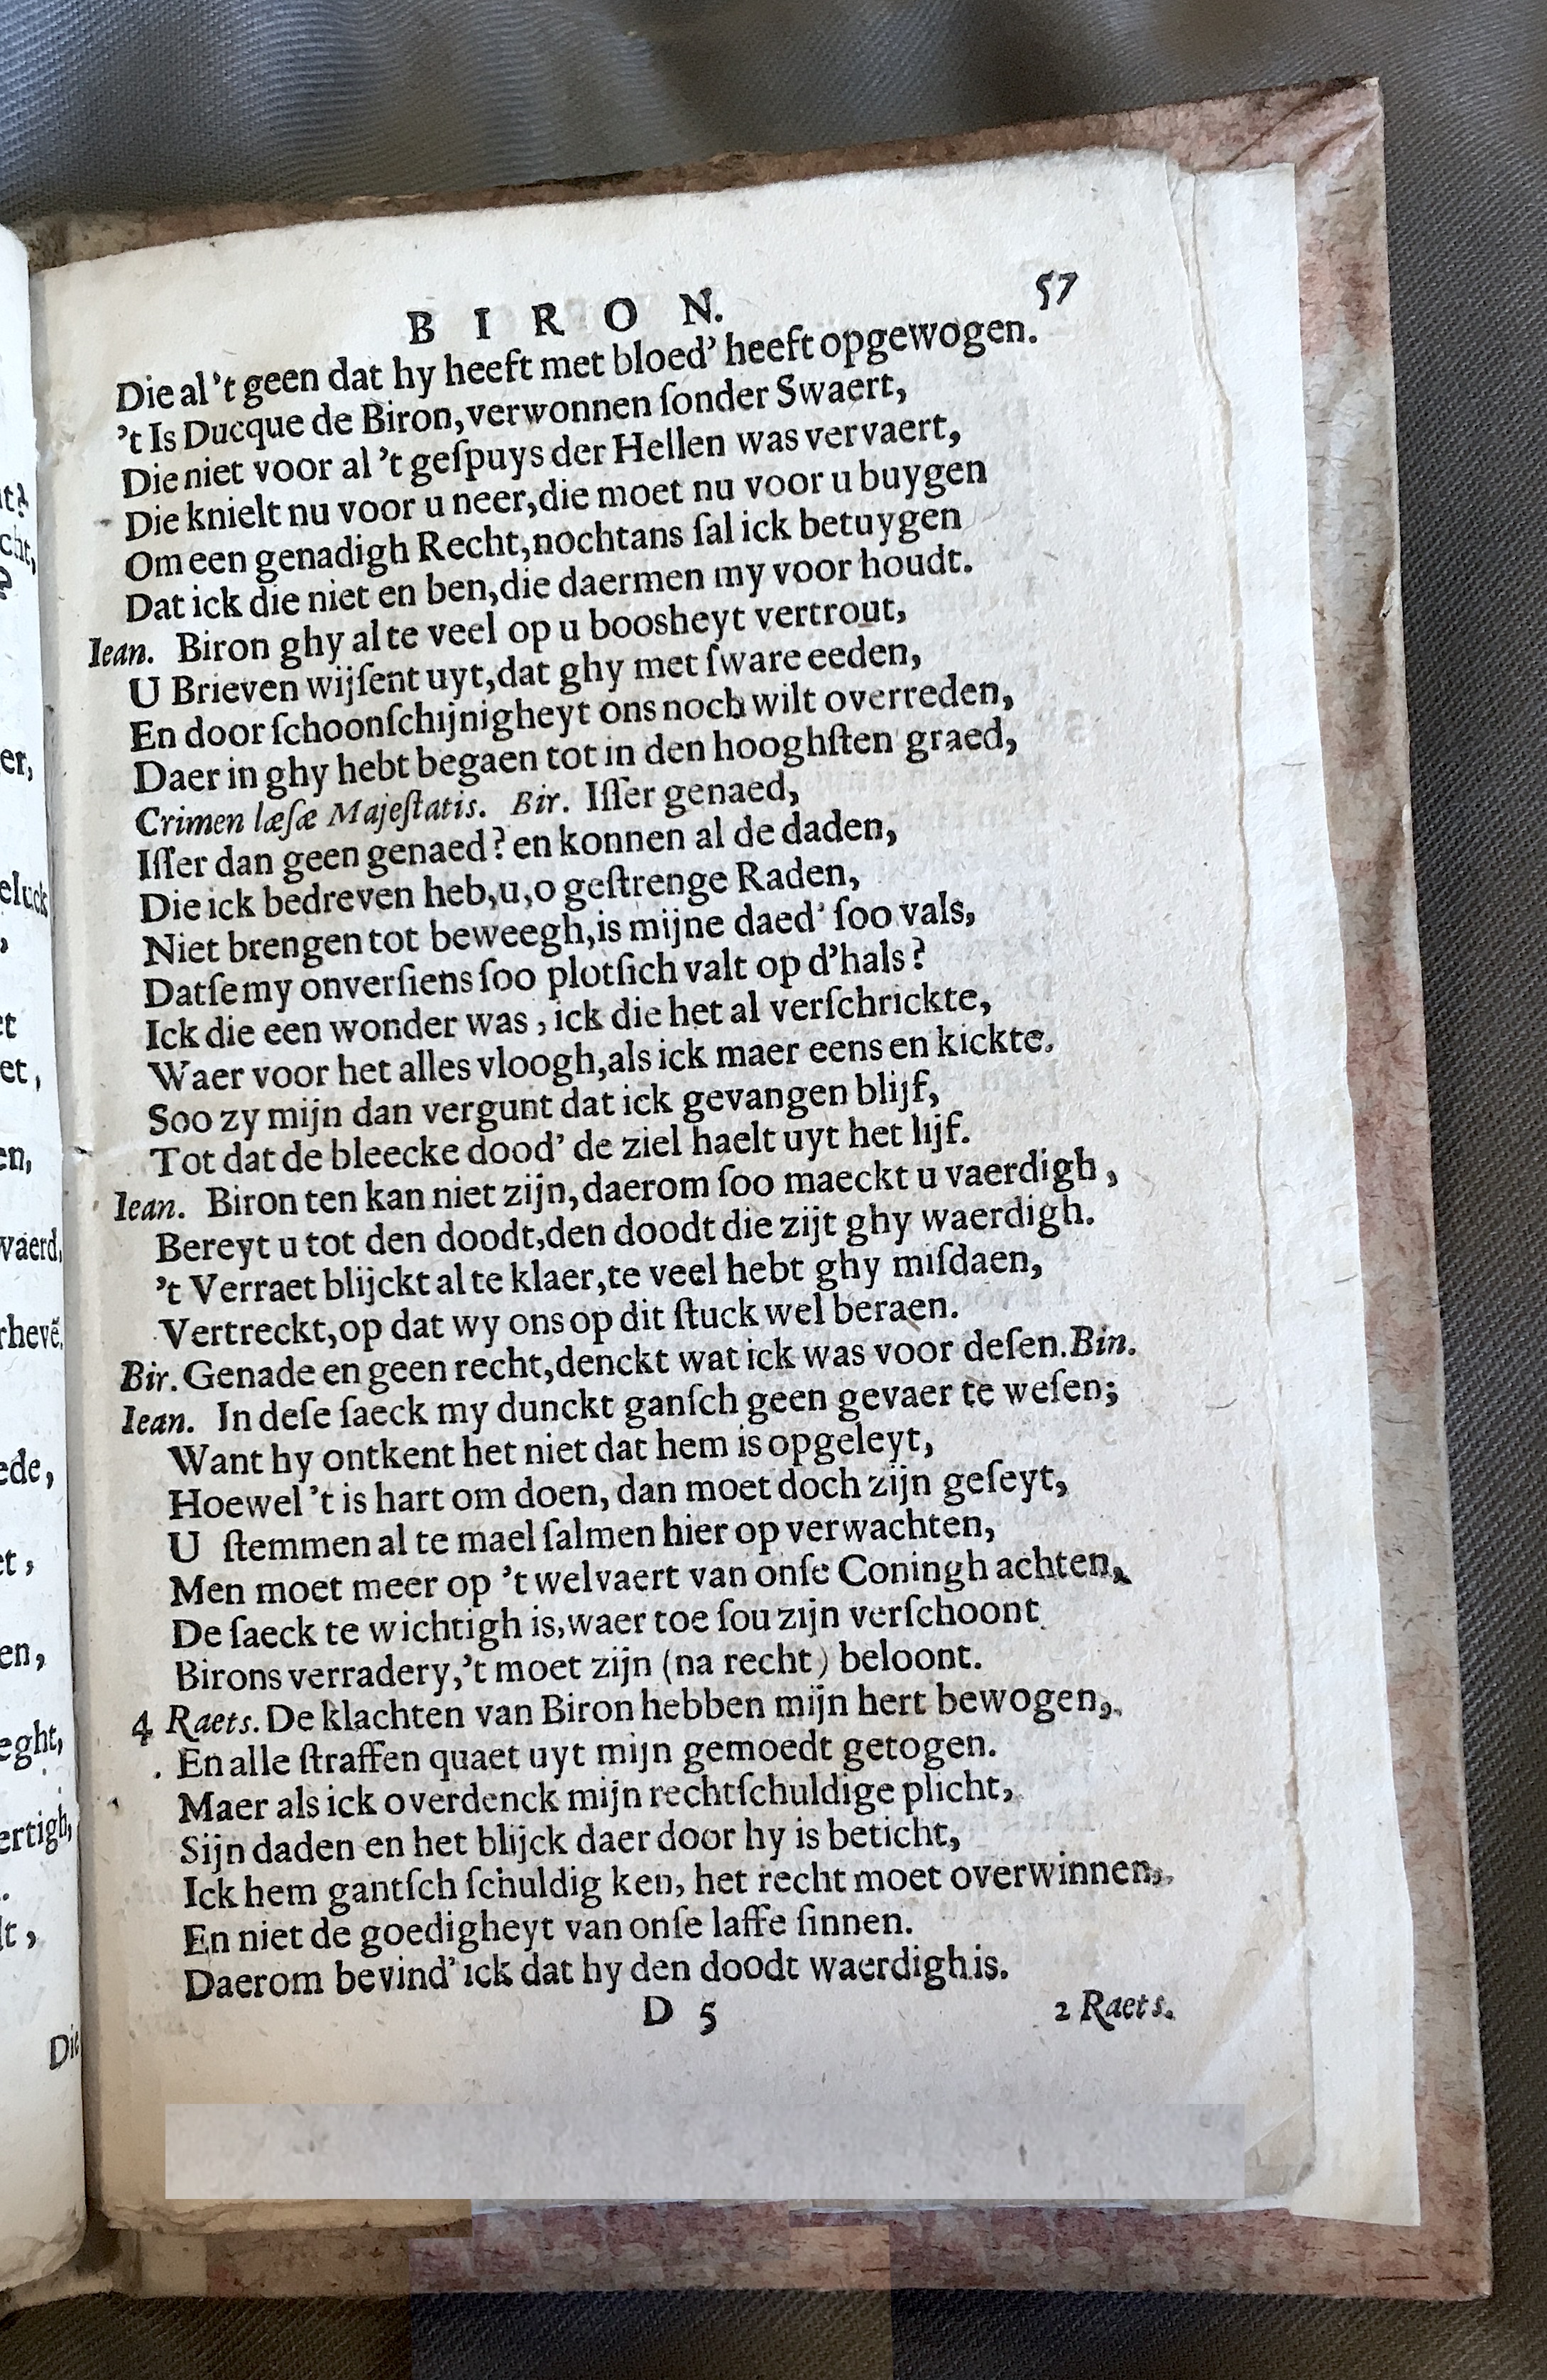 BIRON. 57
Die al 't geen dat hy heeft met bloed' heeft opgewogen.
't Is Ducque de Biron, verwonnen ſonder Swaert,
Die niet voor al 't geſpuys der Hellen was vervaert,
Die knielt nu voor u neer, die moet nu voor u buygen
Om een genadigh Recht, nochtans ſal ick betuygen
Dat ick die niet en ben, die daermen my voor houdt.
Iean. Biron ghy al te veel op u boosheyt vertrout,
U Brieven wijſent uyt, dat ghy met ſware eeden,
En door ſchoonſchijnigheyt ons noch wilt overreden,
Daer in ghy hebt begaen tot in den hooghſten graed,
Crimen læſæ Majeſtatis. Bir. Iſſer genaed,
Iſſer dan geen genaed? en konnen al de daden,
Die ick bedreven heb, u, o geſtrenge Raden,
Niet brengen tot beweegh, is mijne daed' ſoo vals,
Datſe my onverſiens ſoo plotſich valt op d'hals?
Ick die een wonder was, ick die het al verſchrickte,
Waer voor het alles vloogh, als ick maer eens en kickte.
Soo zy mijn dan vergunt dat ick gevangen blijf,
Tot dat de bleecke dood' de ziel haelt uyt het lijf.
Iean. Biron ten kan niet zijn, daerom ſoo maeckt u vaerdigh,
Bereyt u tot den doodt, den doodt die zijt ghy waerdigh.
't Verraet blijckt al te klaer, te veel hebt ghy miſdaen,
Vertreckt, op dat wy ons op dit ſtuck wel beraen.
Bir. Genade en geen recht, denckt wat ick was voor deſen. Bin.
Iean. In deſe ſaeck my dunckt ganſch geen gevaer te weſen;
Want hy ontkent het niet dat hem is opgeleyt,
Hoewel 't is hart om doen, dan moet doch zijn geſeyt,
U ſtemmen al te mael ſalmen hier op verwachten,
Men moet meer op 't welvaert van onſe Coningh achten,
De ſaeck te wichtigh is, waer toe ſou zijn verſchoont
Birons verradery, 't moet zijn (na recht) beloont.
4 Raets. De klachten van Biron hebben mijn hert bewogen,
En alle ſtraffen quaet uyt mijn gemoedt getogen.
Maer als ick overdenck mijn rechtſchuldige plicht,
Sijn daden en het blijck daer door hy is beticht,
Ick hem gantſch ſchuldig ken, het recht moet overwinnen,
En niet de goedigheyt van onſe laffe ſinnen.
Daerom bevind' ick dat hy den doodt waerdigh is.
D 5 2 Raets.